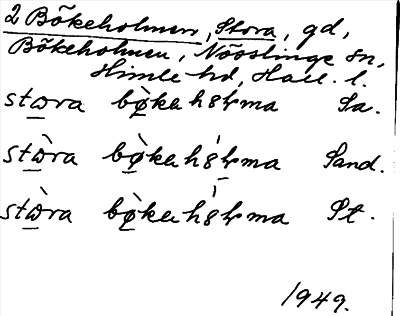 2 Bökeholmen, Stora, gd,
Bökeholmen, Nösslinge sn,
Himle hd, Hall. l.
stɷra bø̀kahʚɭma Sa.
stɷ̀ra bø̀kahʚ́ɭma Sand.
stɷ̀ra bø̀kahʚ́ɭma St.
1949.